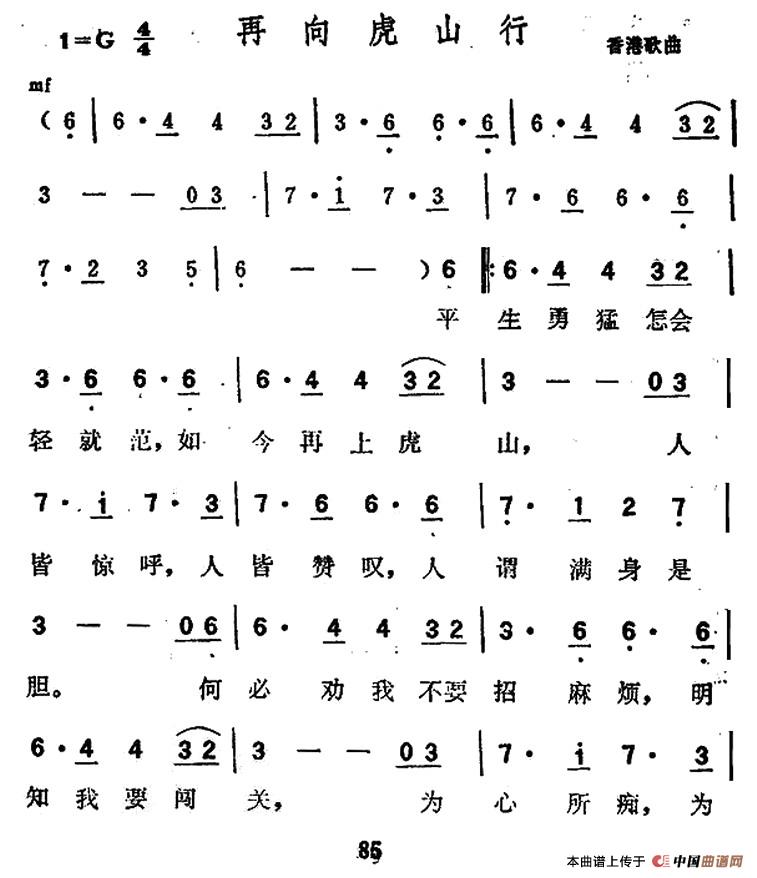 再向虎山行
1=G 4/4 香港歌曲
mf
(6 | 6·4 4 32 | 3·6 6·6 | 6·4 4 32 |
3 — — 03 | 7·i 7·3 | 7·6 6·6 |
7·2 3 5 | 6 — — )6 ‖: 6·4 4 32 |
平 生勇猛怎会
3·6 6·6 | 6·4 4 32 | 3 — — 03 |
轻就范,如 今再上虎 山, 人
7·i 7·3 | 7·6 6·6 | 7·1 2 7 |
皆惊呼,人皆赞叹,人 谓 满身是
3 — — 06 | 6·4 4 32 | 3·6 6·6 |
胆。 何必 劝我不要招 麻烦,明
6·4 4 32 | 3 — — 03 | 7·i 7·3 |
知我要闯 关, 为 心 所痴,为
85
本曲谱上传于 中国曲谱网